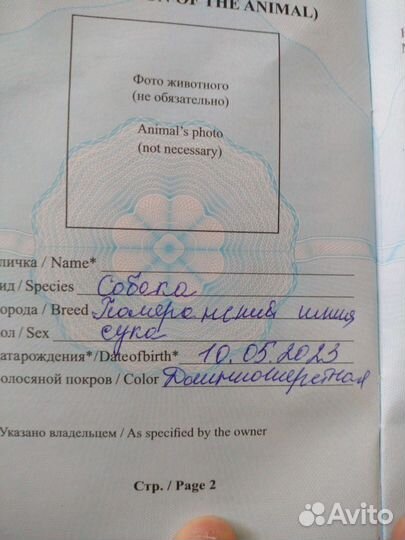 OF THE ANIMAL)
Фото животного
(не обязательно)
Animal's photo
(not necessary)
личка / Name*
ид / Species Собака
орода / Breed Померанский шпиц
ол / Sex сука
атарождения*/Dateofbirth* 10.05.2023
олосяной покров / Color Длинношерстная
Указано владельцем / As specified by the owner
Стр. / Page 2
Avito